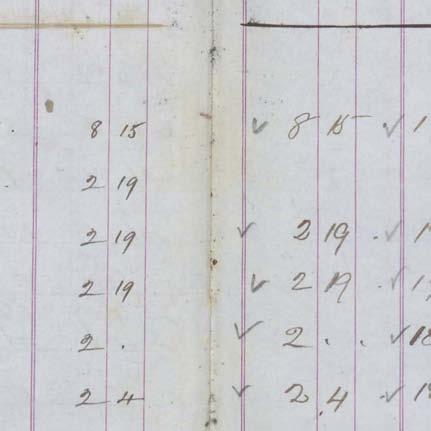 8 15 ✓ 8 15 ✓ 1
2 19
2 19 ✓ 2 19 . ✓
2 19 ✓ 2 19 . ✓
2 . ✓ 2 . . ✓ 18
2 4 ✓ 2 4 . ✓